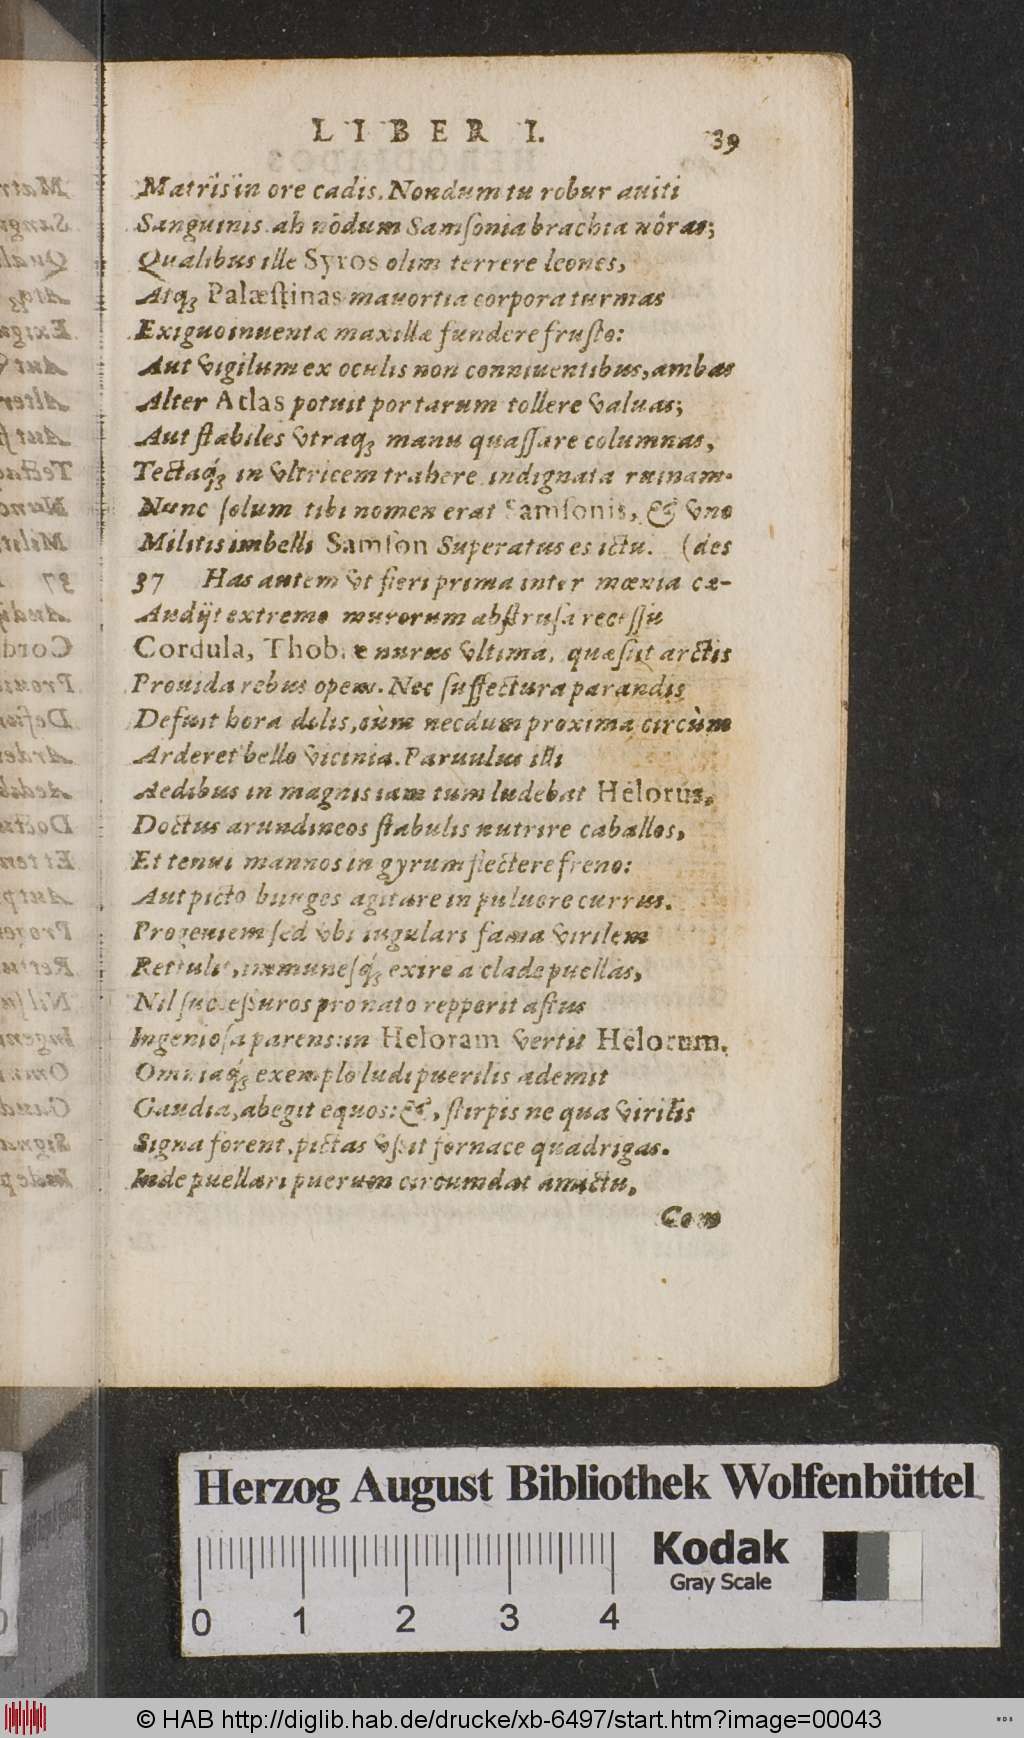 LIBER I. 39
Matris in ore cadis. Nondum tu robur auiti
Sanguinis. ah nōdum Samſonia brachia nôras;
Qualibus ille Syros olim terrere leones,
Atqꝫ Palæſtinas mauortia corpora turmas
Exiguo inuentæ maxillæ fundere fruſto:
Aut vigilum ex oculis non conniuentibus, ambas
Alter Atlas potuit portarum tollere valuas;
Aut ſtabiles vtraqꝫ manu quaſſare columnas,
Tectaq́ꝫ in vltricem trahere indignata ruinam.
Nunc ſolum tibi nomen erat Samſonis, & vno
Militis imbelli Samſon Superatus es ictu. (des
37 Has autem vt fieri prima inter mœnia cæ-
Audijt extremo murorum abſtruſa receſſu
Cordula, Thobiæ nurus vltima, quæſijt arctis
Prouida rebus opem. Nec ſuffectura parandis
Defuit hora dolis, cùm necdum proxima circùm
Arderet bello vicinia. Paruulus illi
Aedibus in magnis iam tum ludebat Helorus,
Doctus arundineos ſtabulis nutrire caballos,
Et tenui mannos in gyrum flectere freno:
Aut picto biiuges agitare in puluere currus.
Progeniem ſed vbi iugulari fama virilem
Rettulit, immuneſq́ꝫ exire a clade puellas,
Nil ſucceßuros pro nato repperit aſtus
Ingenioſa parens: in Heloram vertit Helorum.
Omniaq́ꝫ exemplo ludi puerilis ademit
Gaudia, abegit equos: &, ſtirpis ne qua virilis
Signa forent, pictas vßit fornace quadrigas.
Inde puellari puerum circumdat amictu,
Com
Herzog August Bibliothek Wolfenbüttel
0 1 2 3 4
Kodak
Gray Scale
© HAB http://diglib.hab.de/drucke/xb-6497/start.htm?image=00043